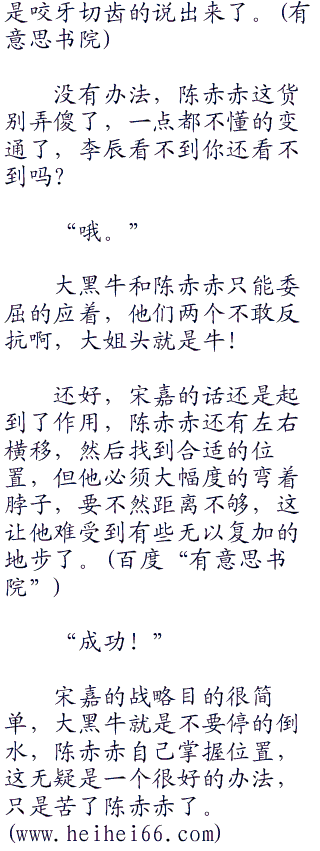 是咬牙切齿的说出来了。(有
意思书院)
没有办法，陈赤赤这货
别弄傻了，一点都不懂的变
通了，李辰看不到你还看不
到吗？
“哦。”
大黑牛和陈赤赤只能委
屈的应着，他们两个不敢反
抗啊，大姐头就是牛！
还好，宋嘉的话还是起
到了作用，陈赤赤还有左右
横移，然后找到合适的位
置，但他必须大幅度的弯着
脖子，要不然距离不够，这
让他难受到有些无以复加的
地步了。(百度“有意思书
院”)
“成功！”
宋嘉的战略目的很简
单，大黑牛就是不要停的倒
水，陈赤赤自己掌握位置，
这无疑是一个很好的办法，
只是苦了陈赤赤了。
(www.heihei66.com)